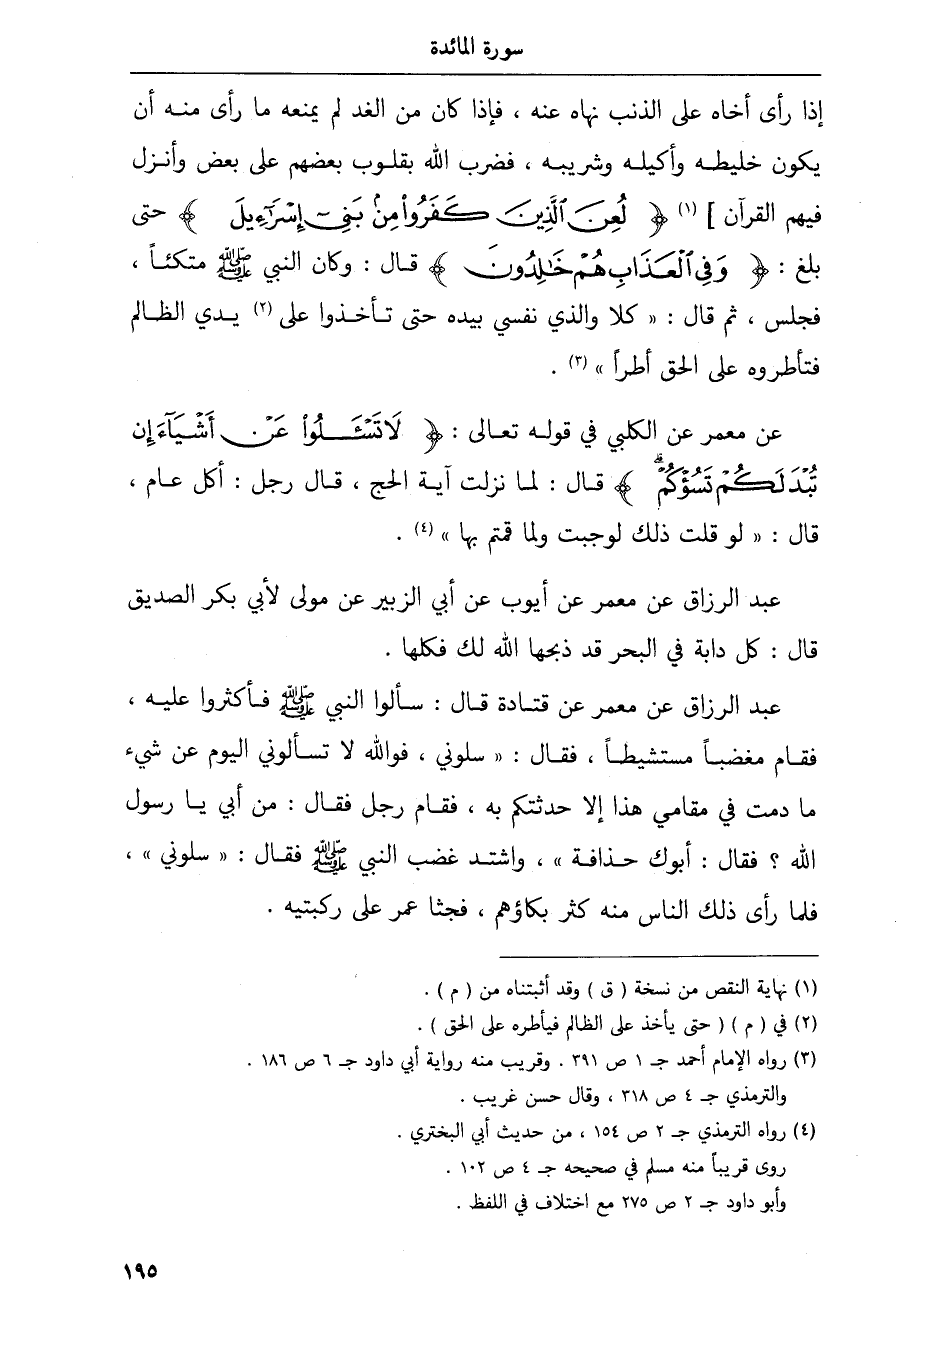 سورة المائدة
إذا رأى أخاه على الذنب نهاه عنه ، فإذا كان من الغد لم يمنعه ما رأى منه أن
يكون خليطه وأكيله وشريبه ، فضرب الله بقلوب بعضهم على بعض وأنزل
فيهم القرآن ] (١) ﴿ لُعِنَ ٱلَّذِينَ كَفَرُوا۟ مِنۢ بَنِىٓ إِسْرَٰٓءِيلَ ﴾ حتى
بلغ : ﴿ وَفِى ٱلْعَذَابِ هُمْ خَٰلِدُونَ ﴾ قال : وكان النبي ﷺ متكئاً ،
فجلس ، ثم قال : « كلا والذي نفسي بيده حتى تأخذوا على (٢) يدي الظالم
فتأطروه على الحق أطراً » (٣) .
عن معمر عن الكلبي في قوله تعالى : ﴿ لَا تَسْـَٔلُوا۟ عَنْ أَشْيَآءَ إِن
تُبْدَ لَكُمْ تَسُؤْكُمْ ﴾ قال : لما نزلت آية الحج ، قال رجل : أكل عام ،
قال : « لو قلت ذلك لوجبت ولما قمتم بها » (٤) .
عبد الرزاق عن معمر عن أيوب عن أبي الزبير عن مولى لأبي بكر الصديق
قال : كل دابة في البحر قد ذبحها الله لك فكلها .
عبد الرزاق عن معمر عن قتادة قال : سألوا النبي ﷺ فأكثروا عليه ،
فقام مغضباً مستشيطاً ، فقال : « سلوني ، فوالله لا تسألوني اليوم عن شيء
ما دمت في مقامي هذا إلا حدثتكم به ، فقام رجل فقال : من أبي يا رسول
الله ؟ فقال : أبوك حذافة » ، واشتد غضب النبي ﷺ فقال : « سلوني » ،
فلما رأى ذلك الناس منه كثر بكاؤهم ، فجثا عمر على ركبتيه .
(١) نهاية النقص من نسخة ( ق ) وقد أثبتناه من ( م ) .
(٢) في ( م ) ( حتى يأخذ على الظالم فيأطره على الحق ) .
(٣) رواه الإمام أحمد جـ ١ ص ٣٩١ . وقريب منه رواية أبي داود جـ ٦ ص ١٨٦ .
والترمذي جـ ٤ ص ٣١٨ ، وقال حسن غريب .
(٤) رواه الترمذي جـ ٢ ص ١٥٤ ، من حديث أبي البختري .
روى قريباً منه مسلم في صحيحه جـ ٤ ص ١٠٢ .
وأبو داود جـ ٢ ص ٢٧٥ مع اختلاف في اللفظ .
١٩٥